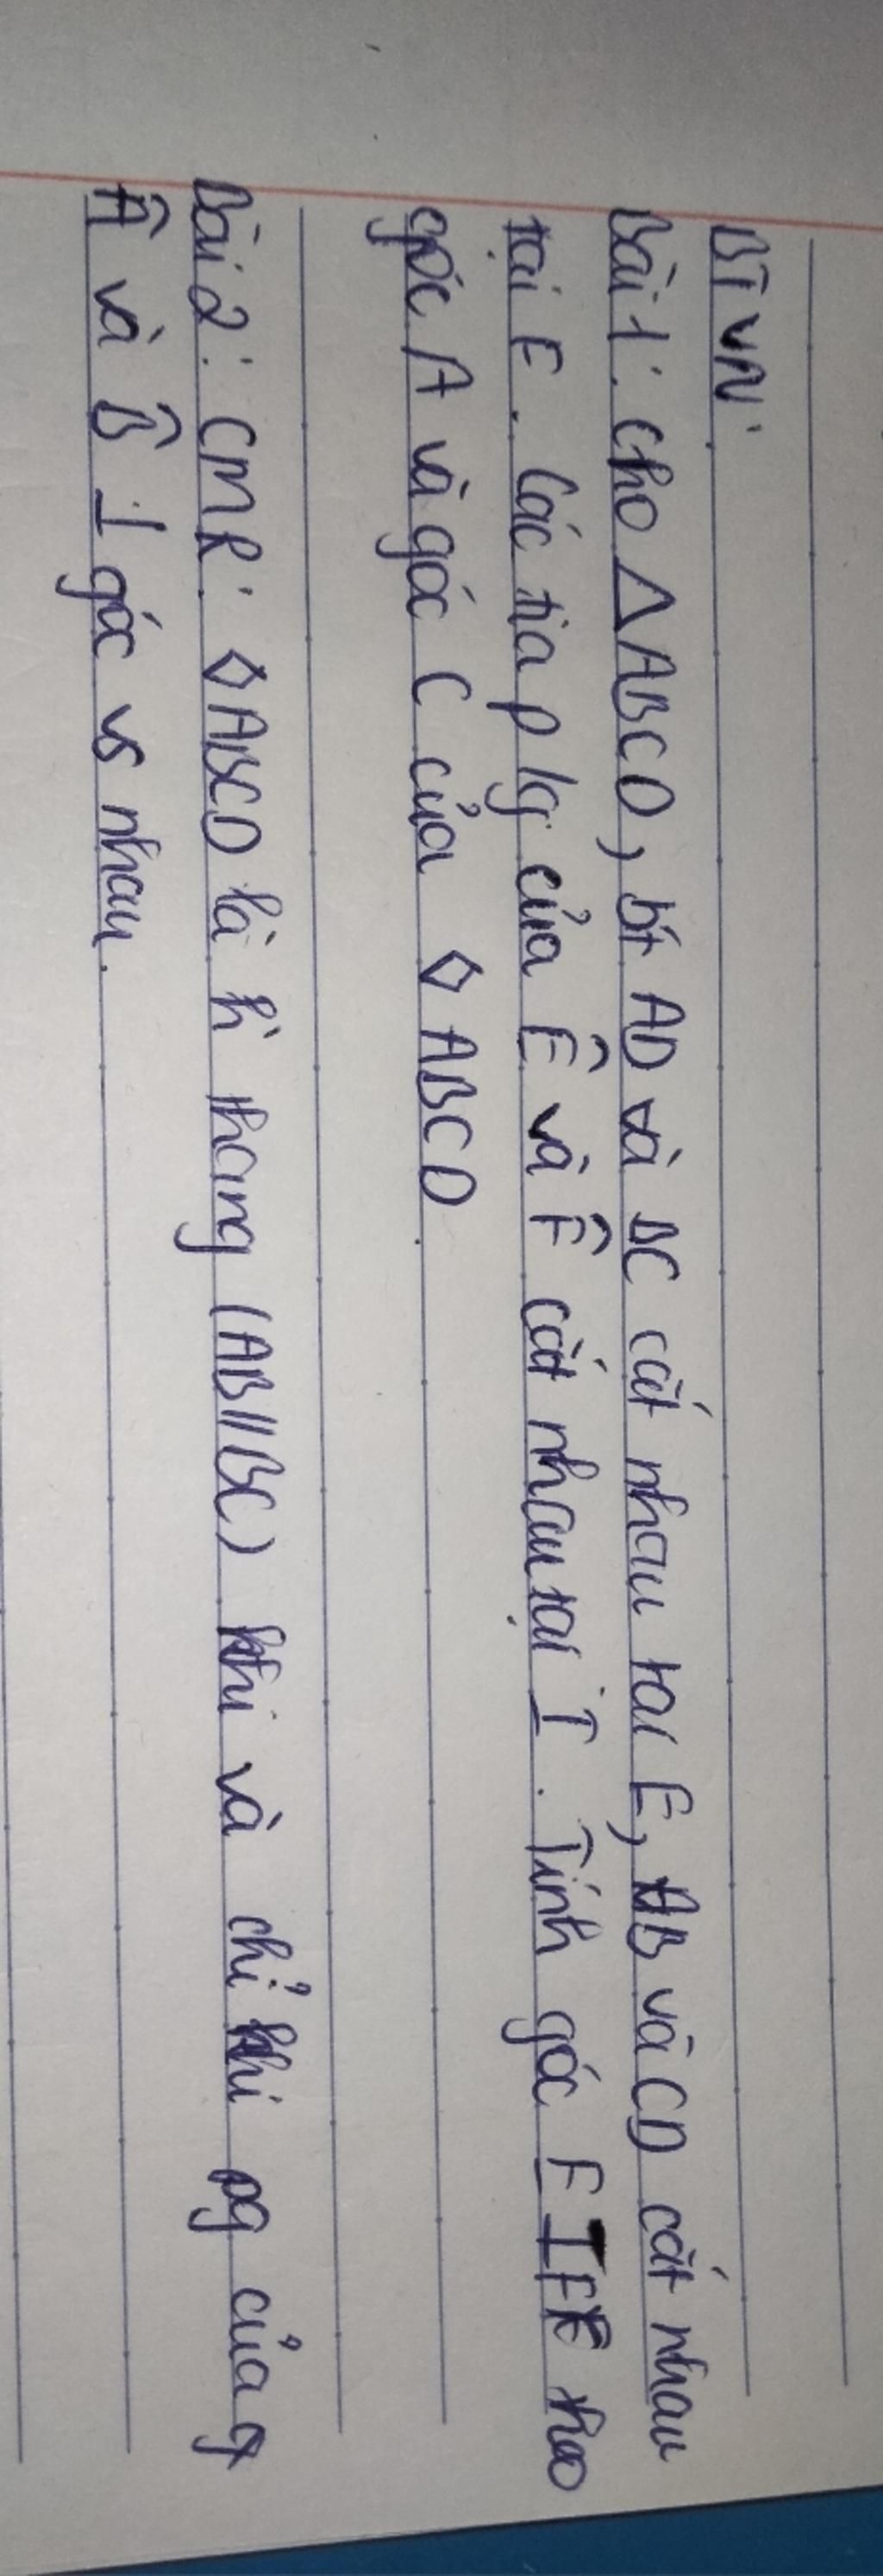 BTVN:
Bài 1: Cho △ABCD, bt AD và BC cắt nhau tại E, AB và CD cắt nhau
tại F. Các tia p/g của Ê và F̂ cắt nhau tại I. Tính góc EIF theo
góc A và góc C của ◊ABCD
Bài 2: CMR: ◊ABCD là h̀ thang (AB//BC) khi và chỉ khi pg của g
Â và B̂ ⊥ góc vs nhau.